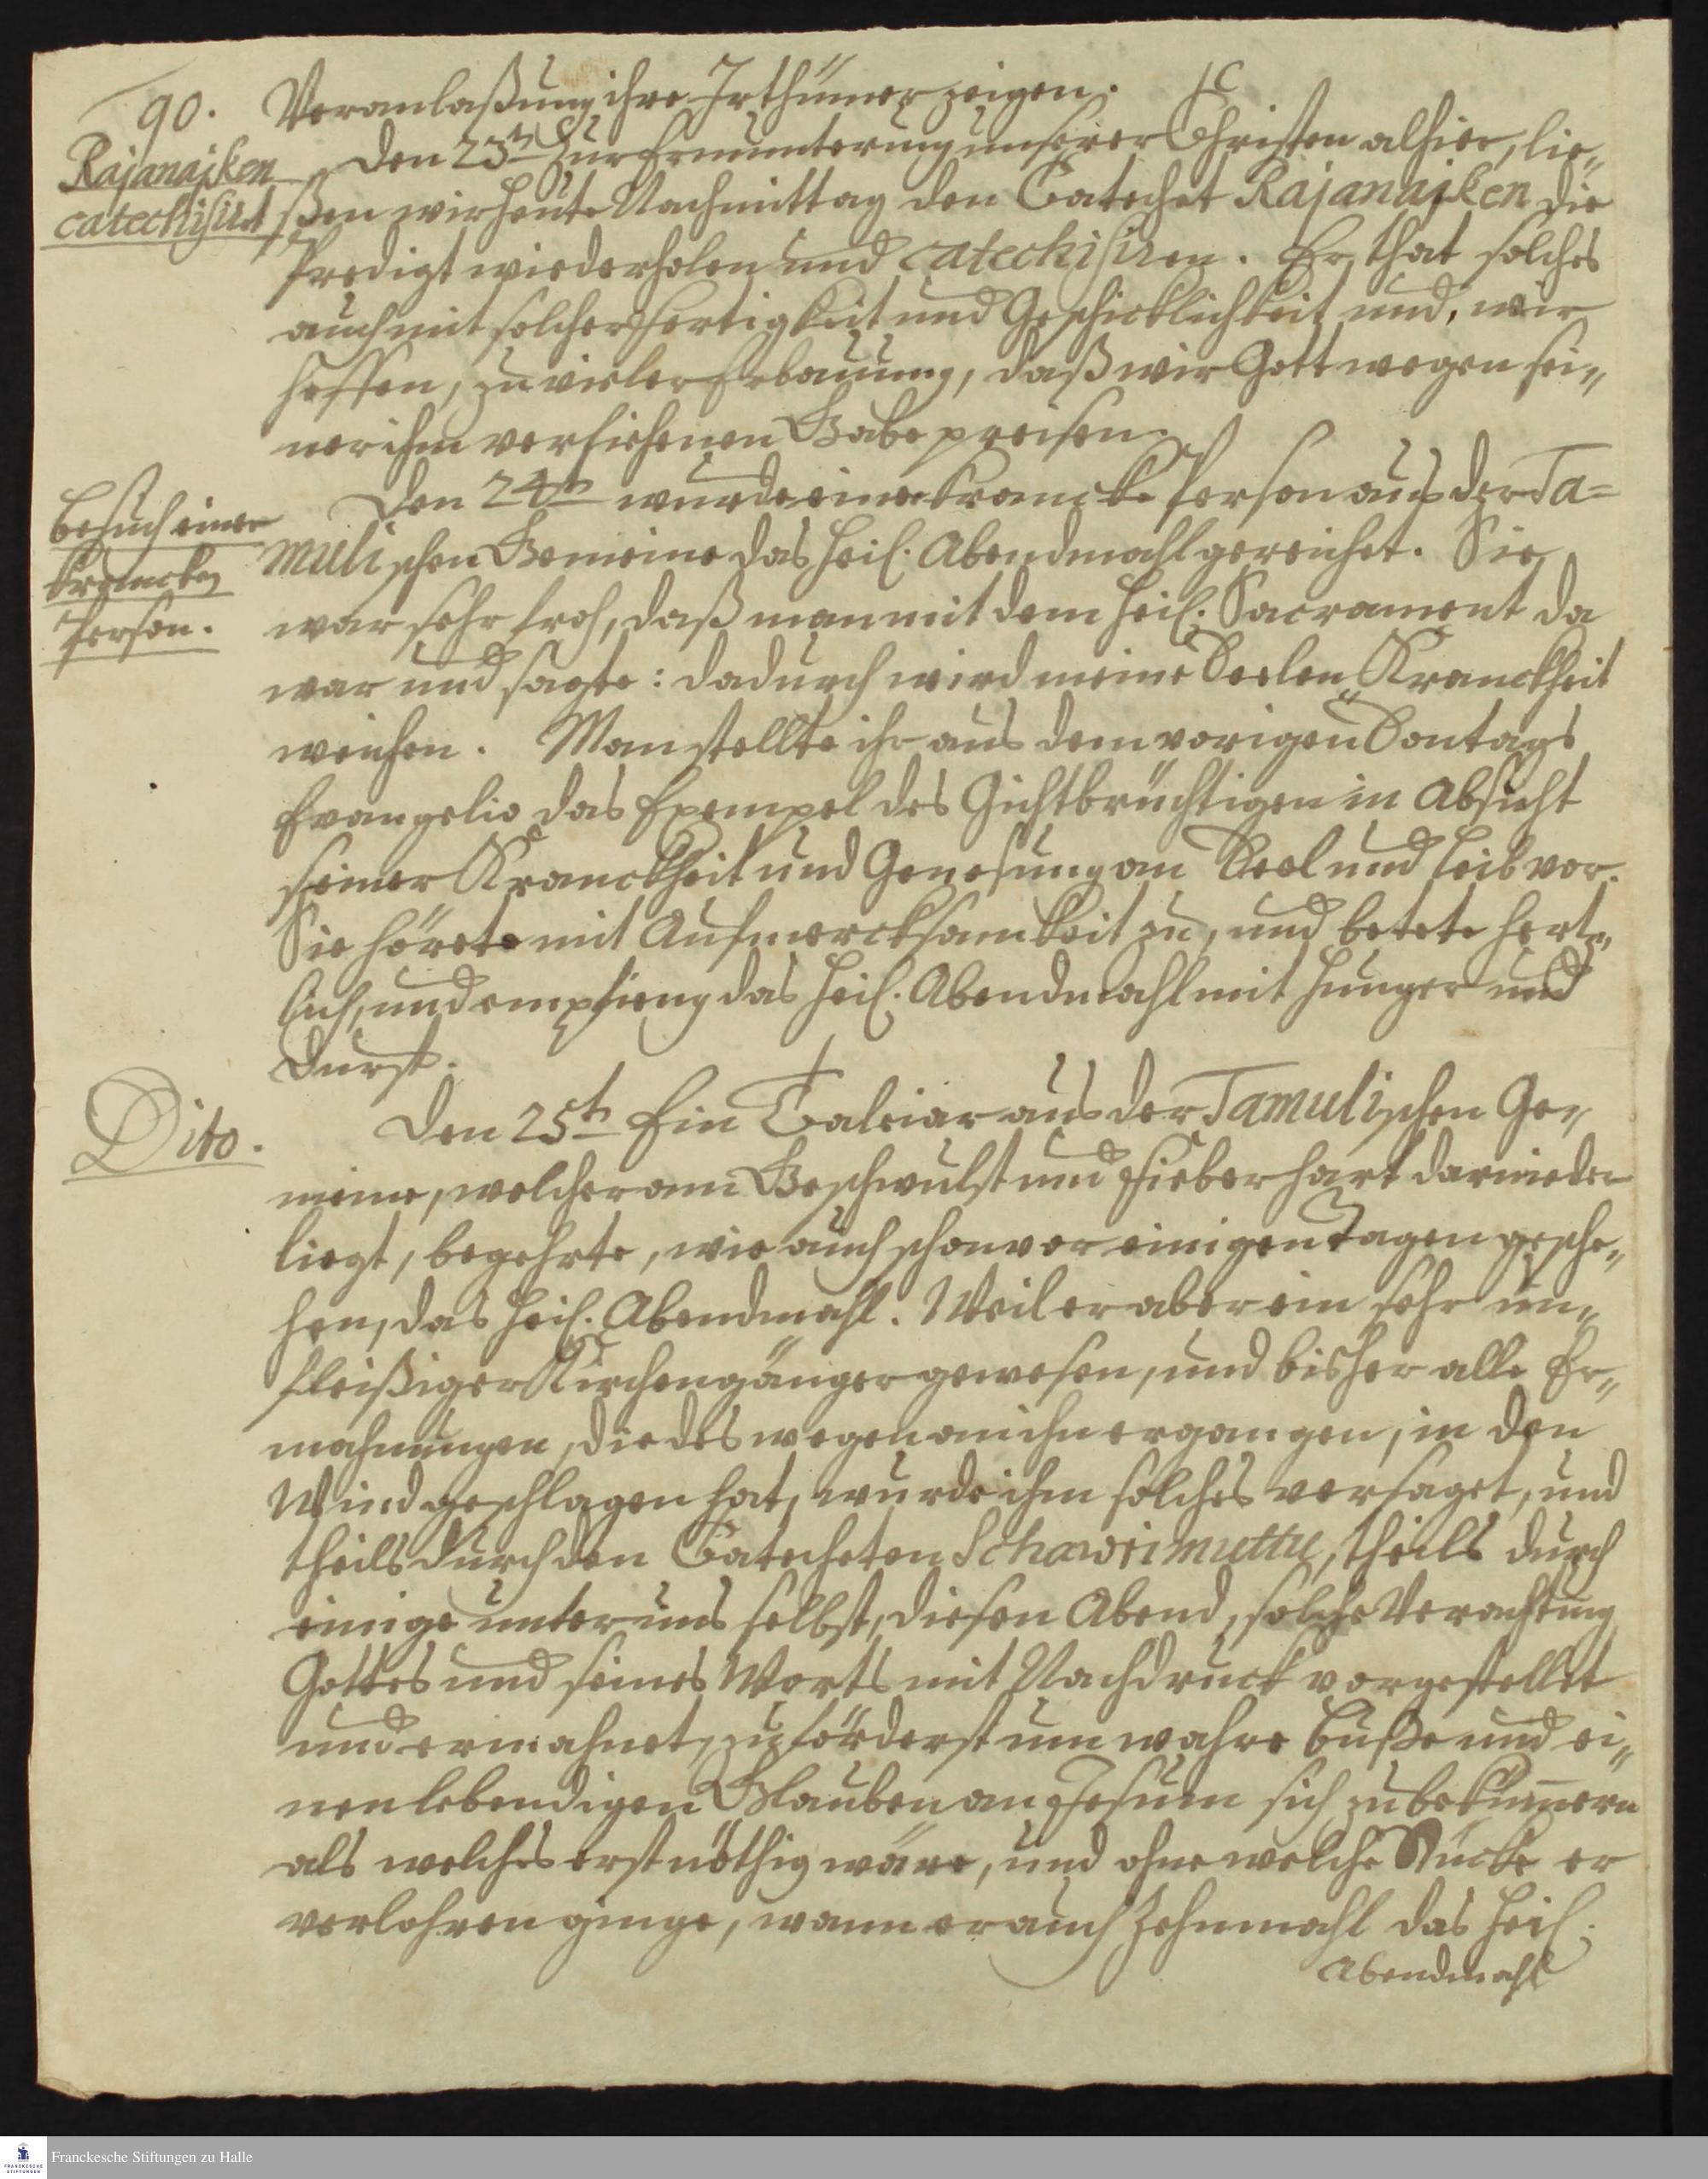 90. Veranlaßung ihre Irthümer zeigen.
Rajanajken
catechisirt
Den 23t Zur Ermunterung unserer Christen alhier, lie„
ßen wir heute Nachmittag den Catechet Rajanajken die
Predigt wiederholen und catechisiren. Er that solches
auch mit solcher Fertigkeit und Geschicklichkeit und, wir
hoffen, zu vieler Erbauung, daß wir Gott wegen sei„
ner ihm verliehenen Gabe preisen.
Besuch einer
krancken
Person.
Den 24t wurde einer krancke Person aus der Ta=
mulischen Gemeine das heil. Abendmahl gereichet. Sie
war sehr froh, daß man mit dem heil. Sacrament da
war und sagte: dadurch wird meine Seelen Kranckheit
weichen. Man stellte ihr aus dem vorigen Sontags
Evangelio das Exempel des Gichtbrüchtigen in Absicht
seiner Kranckheit und Genesung an Seel und Leib vor.
Sie hörete mit Aufmercksamkeit zu, und betete hertz„
lich, und empfieng das heil. Abendmahl mit Hunger und
Durst.
Dito.
Den 25t Ein Caleiar aus der Tamulischen Ge„
meine, welcher an Geschwulst und Fieber hart darnieder
liegt, begehrte, wie auch schon vor einigen Tagen gesche„
hen, das heil. Abendmahl. Weil er aber ein sehr un„
fleißiger Kirchengänger gewesen, und bisher alle Er„
mahnungen, die deswegen an ihn ergangen, in den
Wind geschlagen hat, wurde ihm solches versaget, und
theils durch den Catecheten Schawrimuttu, theils durch
einige unter uns selbst, diesen Abend, solche Verachtung
Gottes und seines Worts mit Nachdruck vorgestellet
und ermahnet, zuförderst um wahre Buße und ei„
nen lebendigen Glauben an Jesum sich zu bekümern
als welches erst nöthig wäre, und ohne welche Stücke er
verlohren ginge, wann er auch zehnmahl das heil.
Abendmahl
Franckesche Stiftungen zu Halle